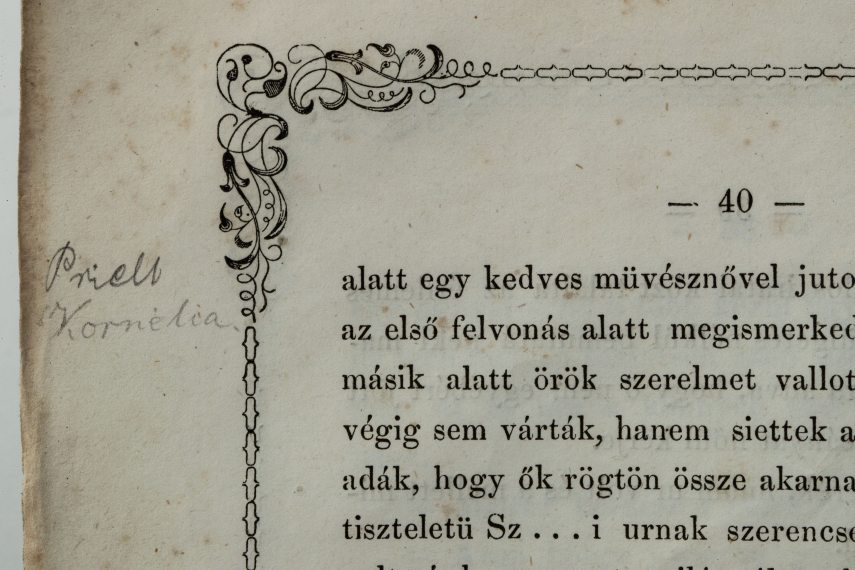 — 40 —
Prielt
Kornélia.
alatt egy kedves müvésznővel juto
az első felvonás alatt megismerked
másik alatt örök szerelmet vallot
végig sem várták, hanem siettek a
adák, hogy ők rögtön össze akarna
tiszteletü Sz . . . i urnak szerencse